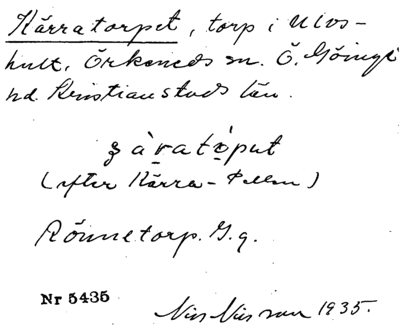 Kärratorpet, torp i Ulvs-
hult, Örkeneds sn. Ö. Göinge
hd. Kristianstads län.
(efter Kärra-Pellen)
Rönnetorp. G.g.
Nr 5435
Nils Nilsson 1935.